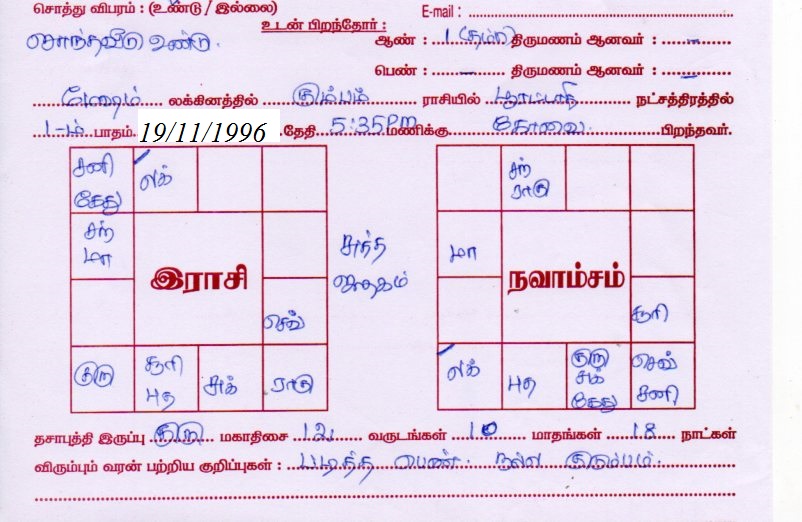 சொத்து விபரம் : (உண்டு / இல்லை)
E-mail :
உடன் பிறந்தோர் :
சொந்தவீடு உண்டு.
ஆண் : 1 (தம்பி) திருமணம் ஆனவர் : –
பெண் : – திருமணம் ஆனவர் : –
மேஷம் லக்கினத்தில் கும்பம் ராசியில் பூரட்டாதி நட்சத்திரத்தில்
1-ம் பாதம். 19/11/1996 தேதி 5:35PM மணிக்கு கோவை பிறந்தவர்.
சனி
கேது
லக்
சந்
மா
இராசி
செவ்
குரு
சூரி
புத
சுக்
ராகு
சுத்த
ஜாதகம்
சந்
ராகு
மா
நவாம்சம்
சூரி
லக்
புத
குரு
சுக்
கேது
செவ்
சனி
தசாபுத்தி இருப்பு குரு மகாதிசை 12 வருடங்கள் 10 மாதங்கள் 18 நாட்கள்
விரும்பும் வரன் பற்றிய குறிப்புகள் : படித்த பெண். நல்ல குடும்பம்.